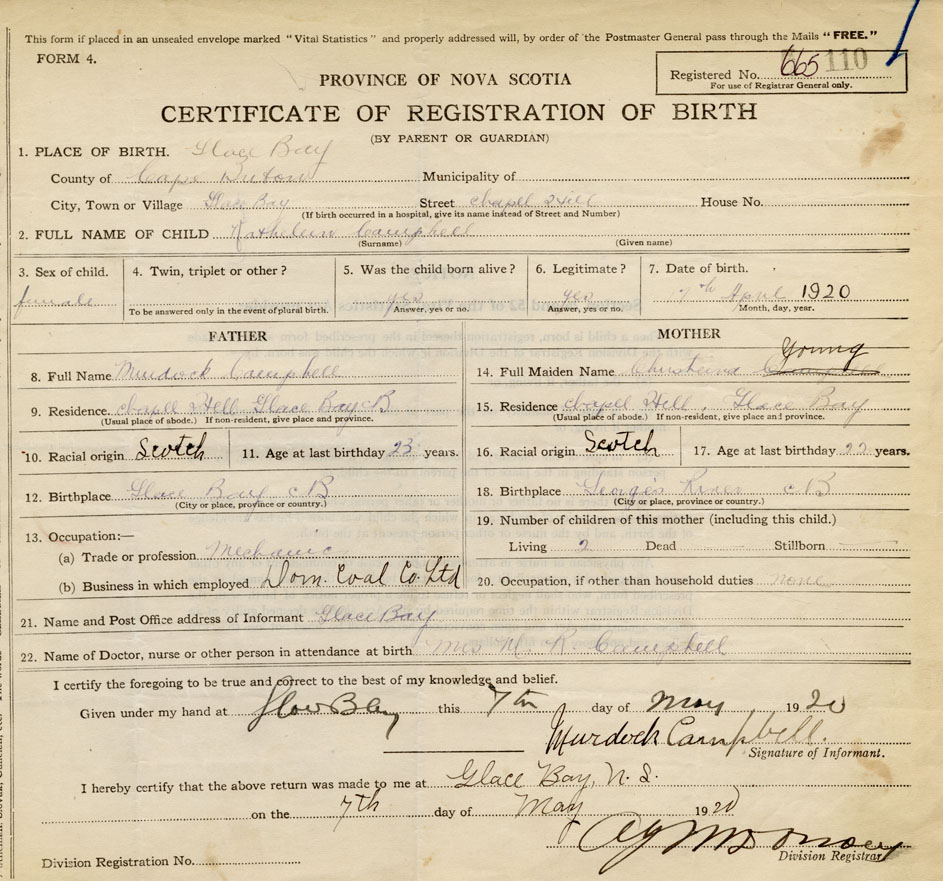 This form if placed in an unsealed envelope marked "Vital Statistics" and properly addressed will, by order of the Postmaster General pass through the Mails "FREE."
FORM 4.
Registered No. 665 110
For use of Registrar General only.
PROVINCE OF NOVA SCOTIA
CERTIFICATE OF REGISTRATION OF BIRTH
(BY PARENT OR GUARDIAN)
1. PLACE OF BIRTH. Glace Bay
County of Cape Breton Municipality of
City, Town or Village Glace Bay Street Chapel Hill House No.
(If birth occurred in a hospital, give its name instead of Street and Number)
2. FULL NAME OF CHILD Campbell
(Surname) (Given name)
3. Sex of child. 4. Twin, triplet or other? 5. Was the child born alive? 6. Legitimate? 7. Date of birth.
female yes yes 7th April 1920
To be answered only in the event of plural birth. Answer, yes or no. Answer, yes or no. Month, day, year.
FATHER
8. Full Name Murdock Campbell
9. Residence. Chapel Hill Glace Bay CB
(Usual place of abode.) If non-resident, give place and province.
10. Racial origin Scotch 11. Age at last birthday 23 years.
12. Birthplace Glace Bay CB
(City or place, province or country.)
13. Occupation:—
(a) Trade or profession Mechanic
(b) Business in which employed Dom. Coal Co. Ltd
MOTHER
Young
14. Full Maiden Name
15. Residence Chapel Hill, Glace Bay
(Usual place of abode.) If non-resident, give place and province.
16. Racial origin Scotch 17. Age at last birthday years.
18. Birthplace Georges River CB
(City or place, province or country.)
19. Number of children of this mother (including this child.)
Living 2 Dead Stillborn
20. Occupation, if other than household duties none
21. Name and Post Office address of Informant Glace Bay
22. Name of Doctor, nurse or other person in attendance at birth Mrs M. R. Campbell
I certify the foregoing to be true and correct to the best of my knowledge and belief.
Given under my hand at Glace Bay this 7th day of May 1920
Murdock Campbell.
Signature of Informant.
I hereby certify that the above return was made to me at Glace Bay, N.S.
on the 7th day of May 1920
Division Registrar
Division Registration No.